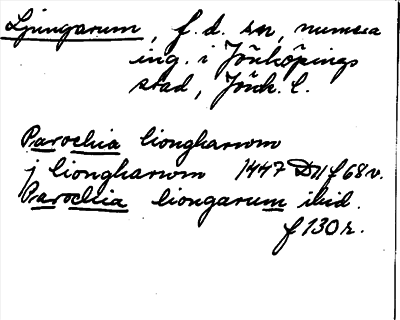 Ljungarum, f. d. sn, numera
ing. i Jönköpings
stad, Jönk. l.
Parochia liongharwm
j liongharwm 1447 D11 f 68 v.
Parochia liongarum ibid.
f 130 r.